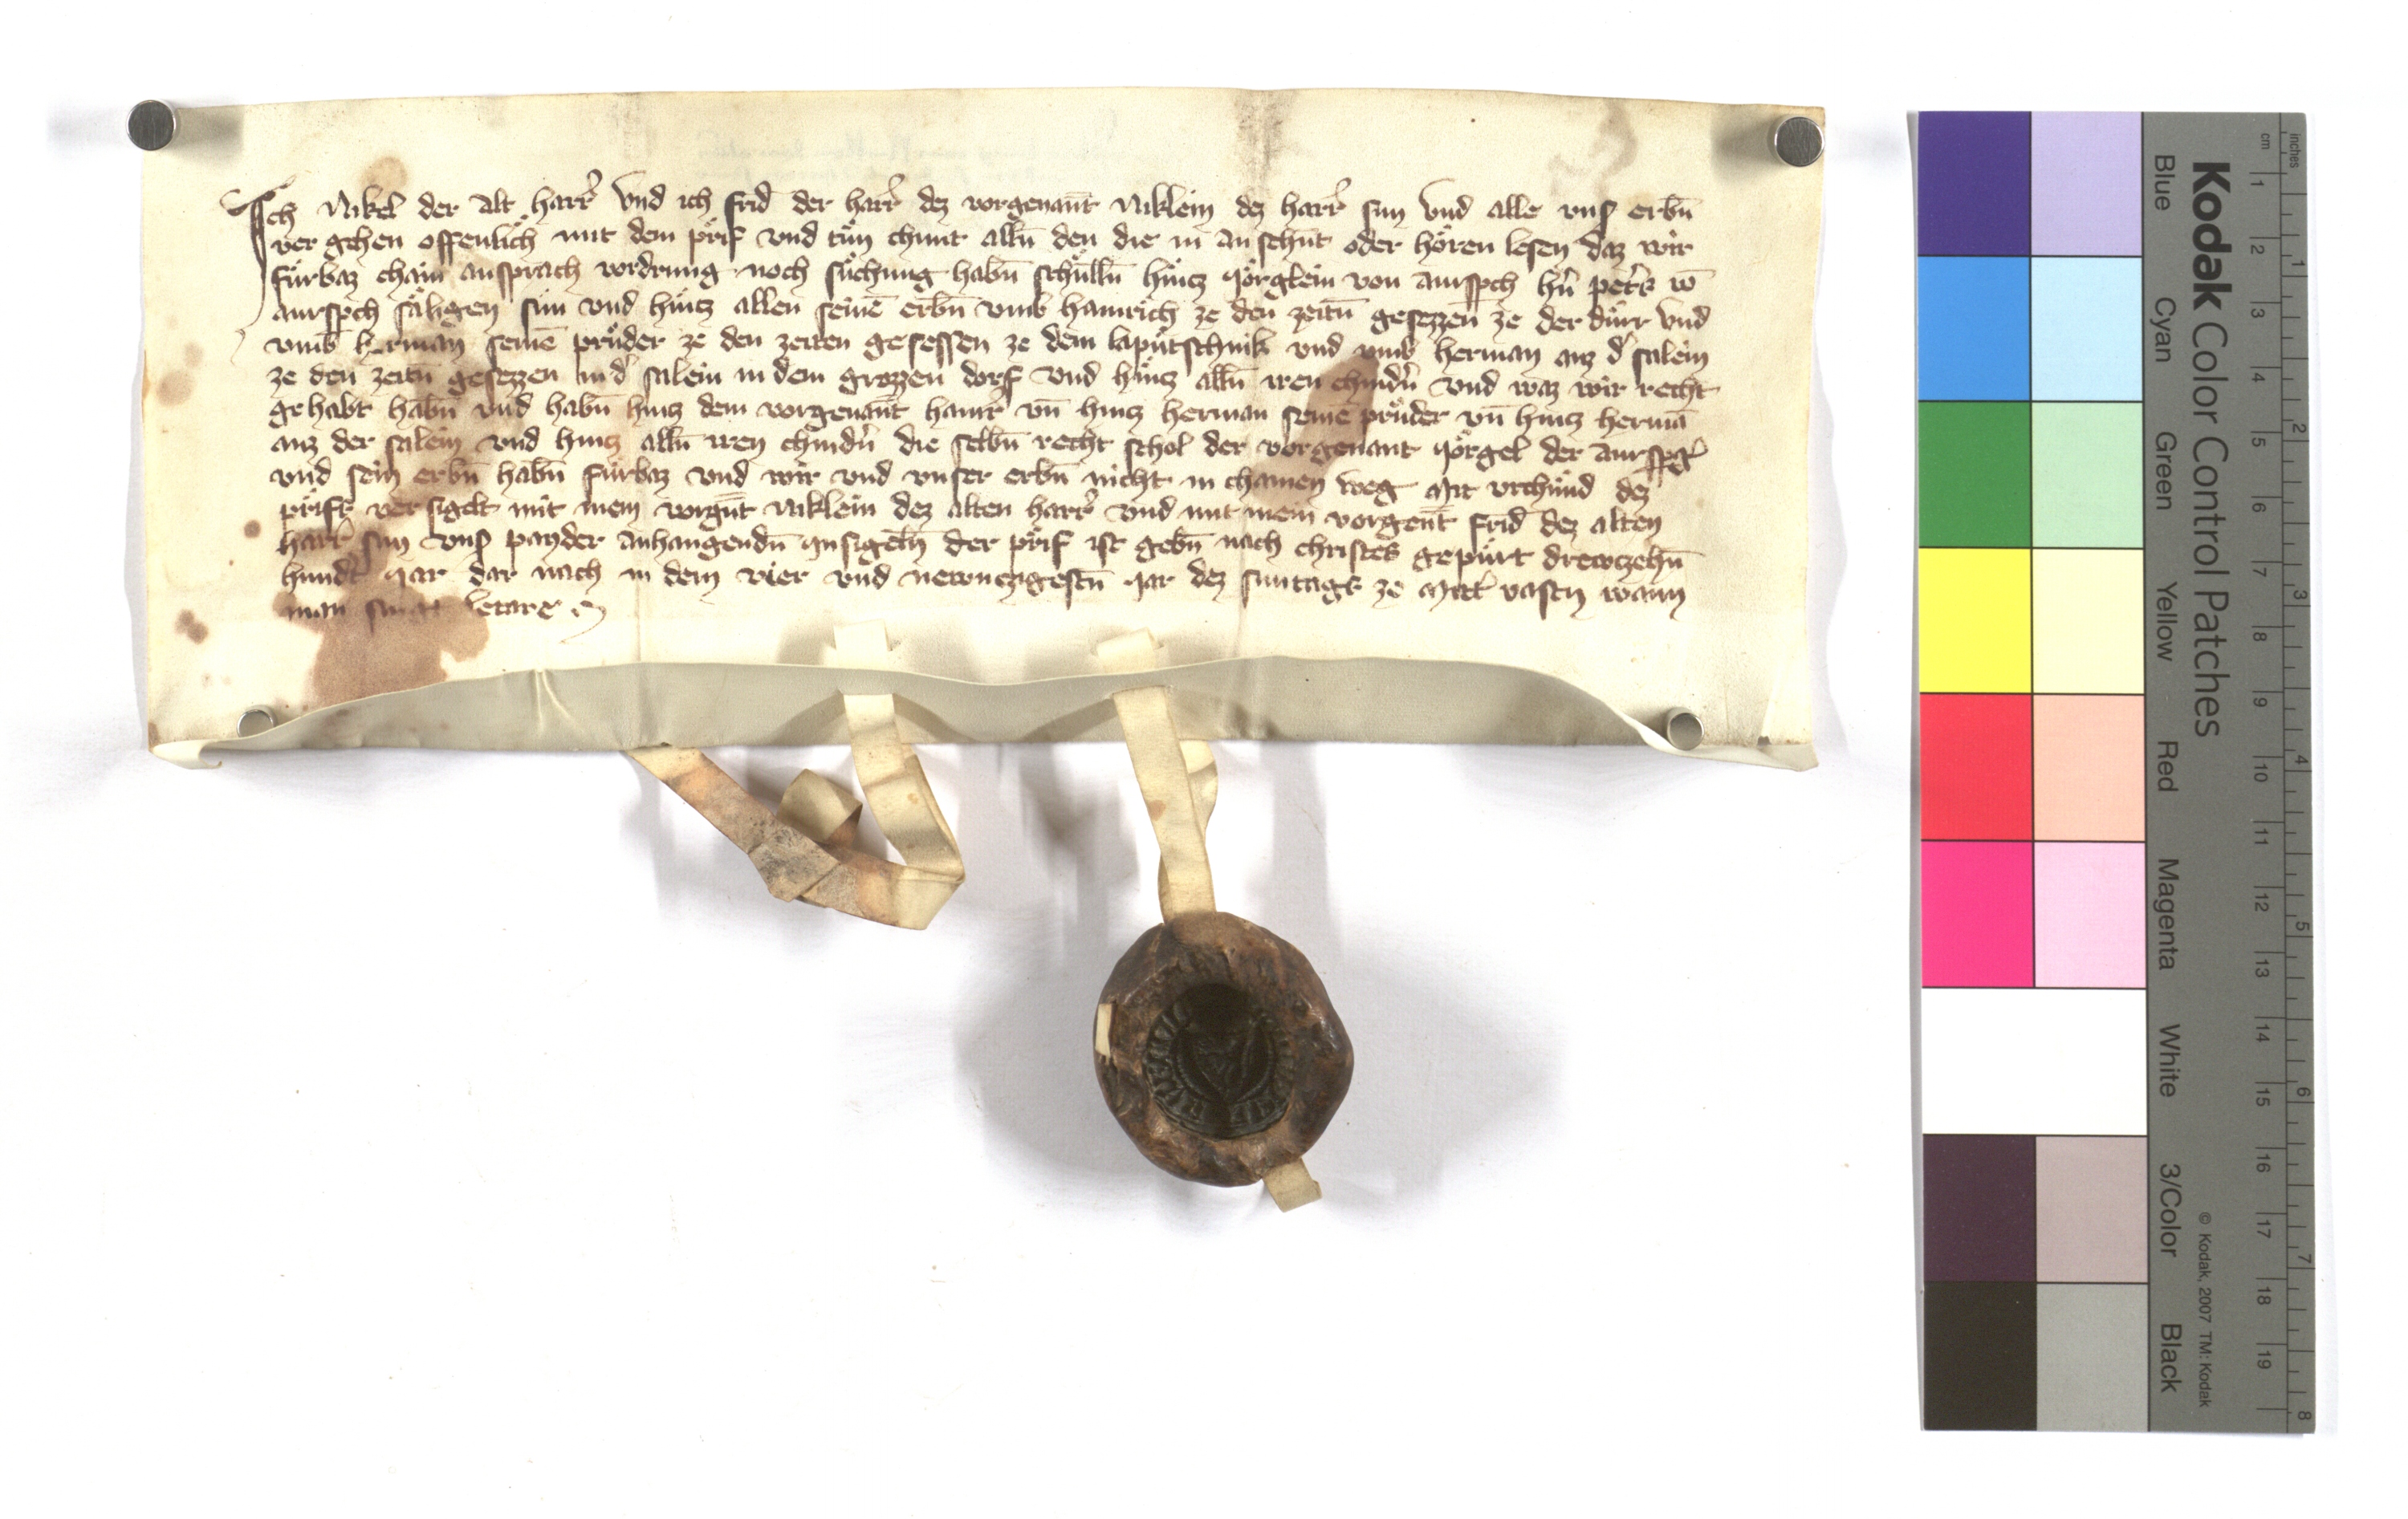 Ich Nikel der Alt harrˀ vnd ich frid̄ der harrˀ dez vorgenant̄ Niklein dez harrˀ sun vnd alle vns erbn̄
ver gehen offenlich mit dem prif vnd tün chunt alln̄ den die in an sehn̄t oder hören lesen daz wir
fürbaz chain ansprach vordrung noch süchung habn̄ schülln̄ hintz Jörglein von Awrspch hˀn petˀs vō
awrspch säligen sün vnd hintz allen seinē erbn̄ vmb hainrich ze den zeitn̄ gesezzen ze der dürr vnd
vmb herman seinē prüder ze den zeiten gesessen ze dem laputschnik vnd vmb herman auz dˀ salein
ze den zeitn̄ gesezzen in dˀ salein in dem grozzen dorf vnd hintz alln̄ iren chindˀn vnd waz wir recht
gehabt habn̄ vnd habn̄ hintz dem vorgenan̄t hainrˀ vn̄ hintz herman seinē prüder vn̄ hintz hermā
auz der salein vnd hintz alln̄ iren chindˀn die selbn̄ recht schol der vorgenant Jörgel der awrspgˀ
vnd sein erbn̄ habn̄ fürbaz vnd wir vnd vnser erbn̄ nicht in chainen weg Mit vrchünd dez
prifs versigelt mit mein vorgn̄t Niklein dez alten harrˀ vnd mit mein vorgen̄t frid̄ dez alten
harrˀ sun vns payder anhangendn̄ Insigeln̄ der prif ist gebn̄ nach christes gepürt drewtzehn̄
hundˀt Jar dar nach in dem vier vnd newntzigestn̄ Jar dez suntags ze Mittˀ vastn wann
man singt letare
Kodak Color Control Patches
Blue Cyan Green Yellow Red Magenta White 3/Color Black
© Kodak, 2007 TM: Kodak
cm 1 2 3 4 5 6 7 8 9 10 11 12 13 14 15 16 17 18 19
inches 1 2 3 4 5 6 7 8